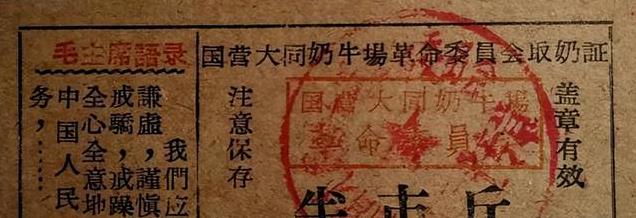 毛主席語录
我們应
謙虚，謹慎
戒驕，戒躁
全心全意地
中国人民
务，……
国营大同奶牛場革命委員会取奶証
注意保存
国营大同奶牛場
革命委員
盖章有效